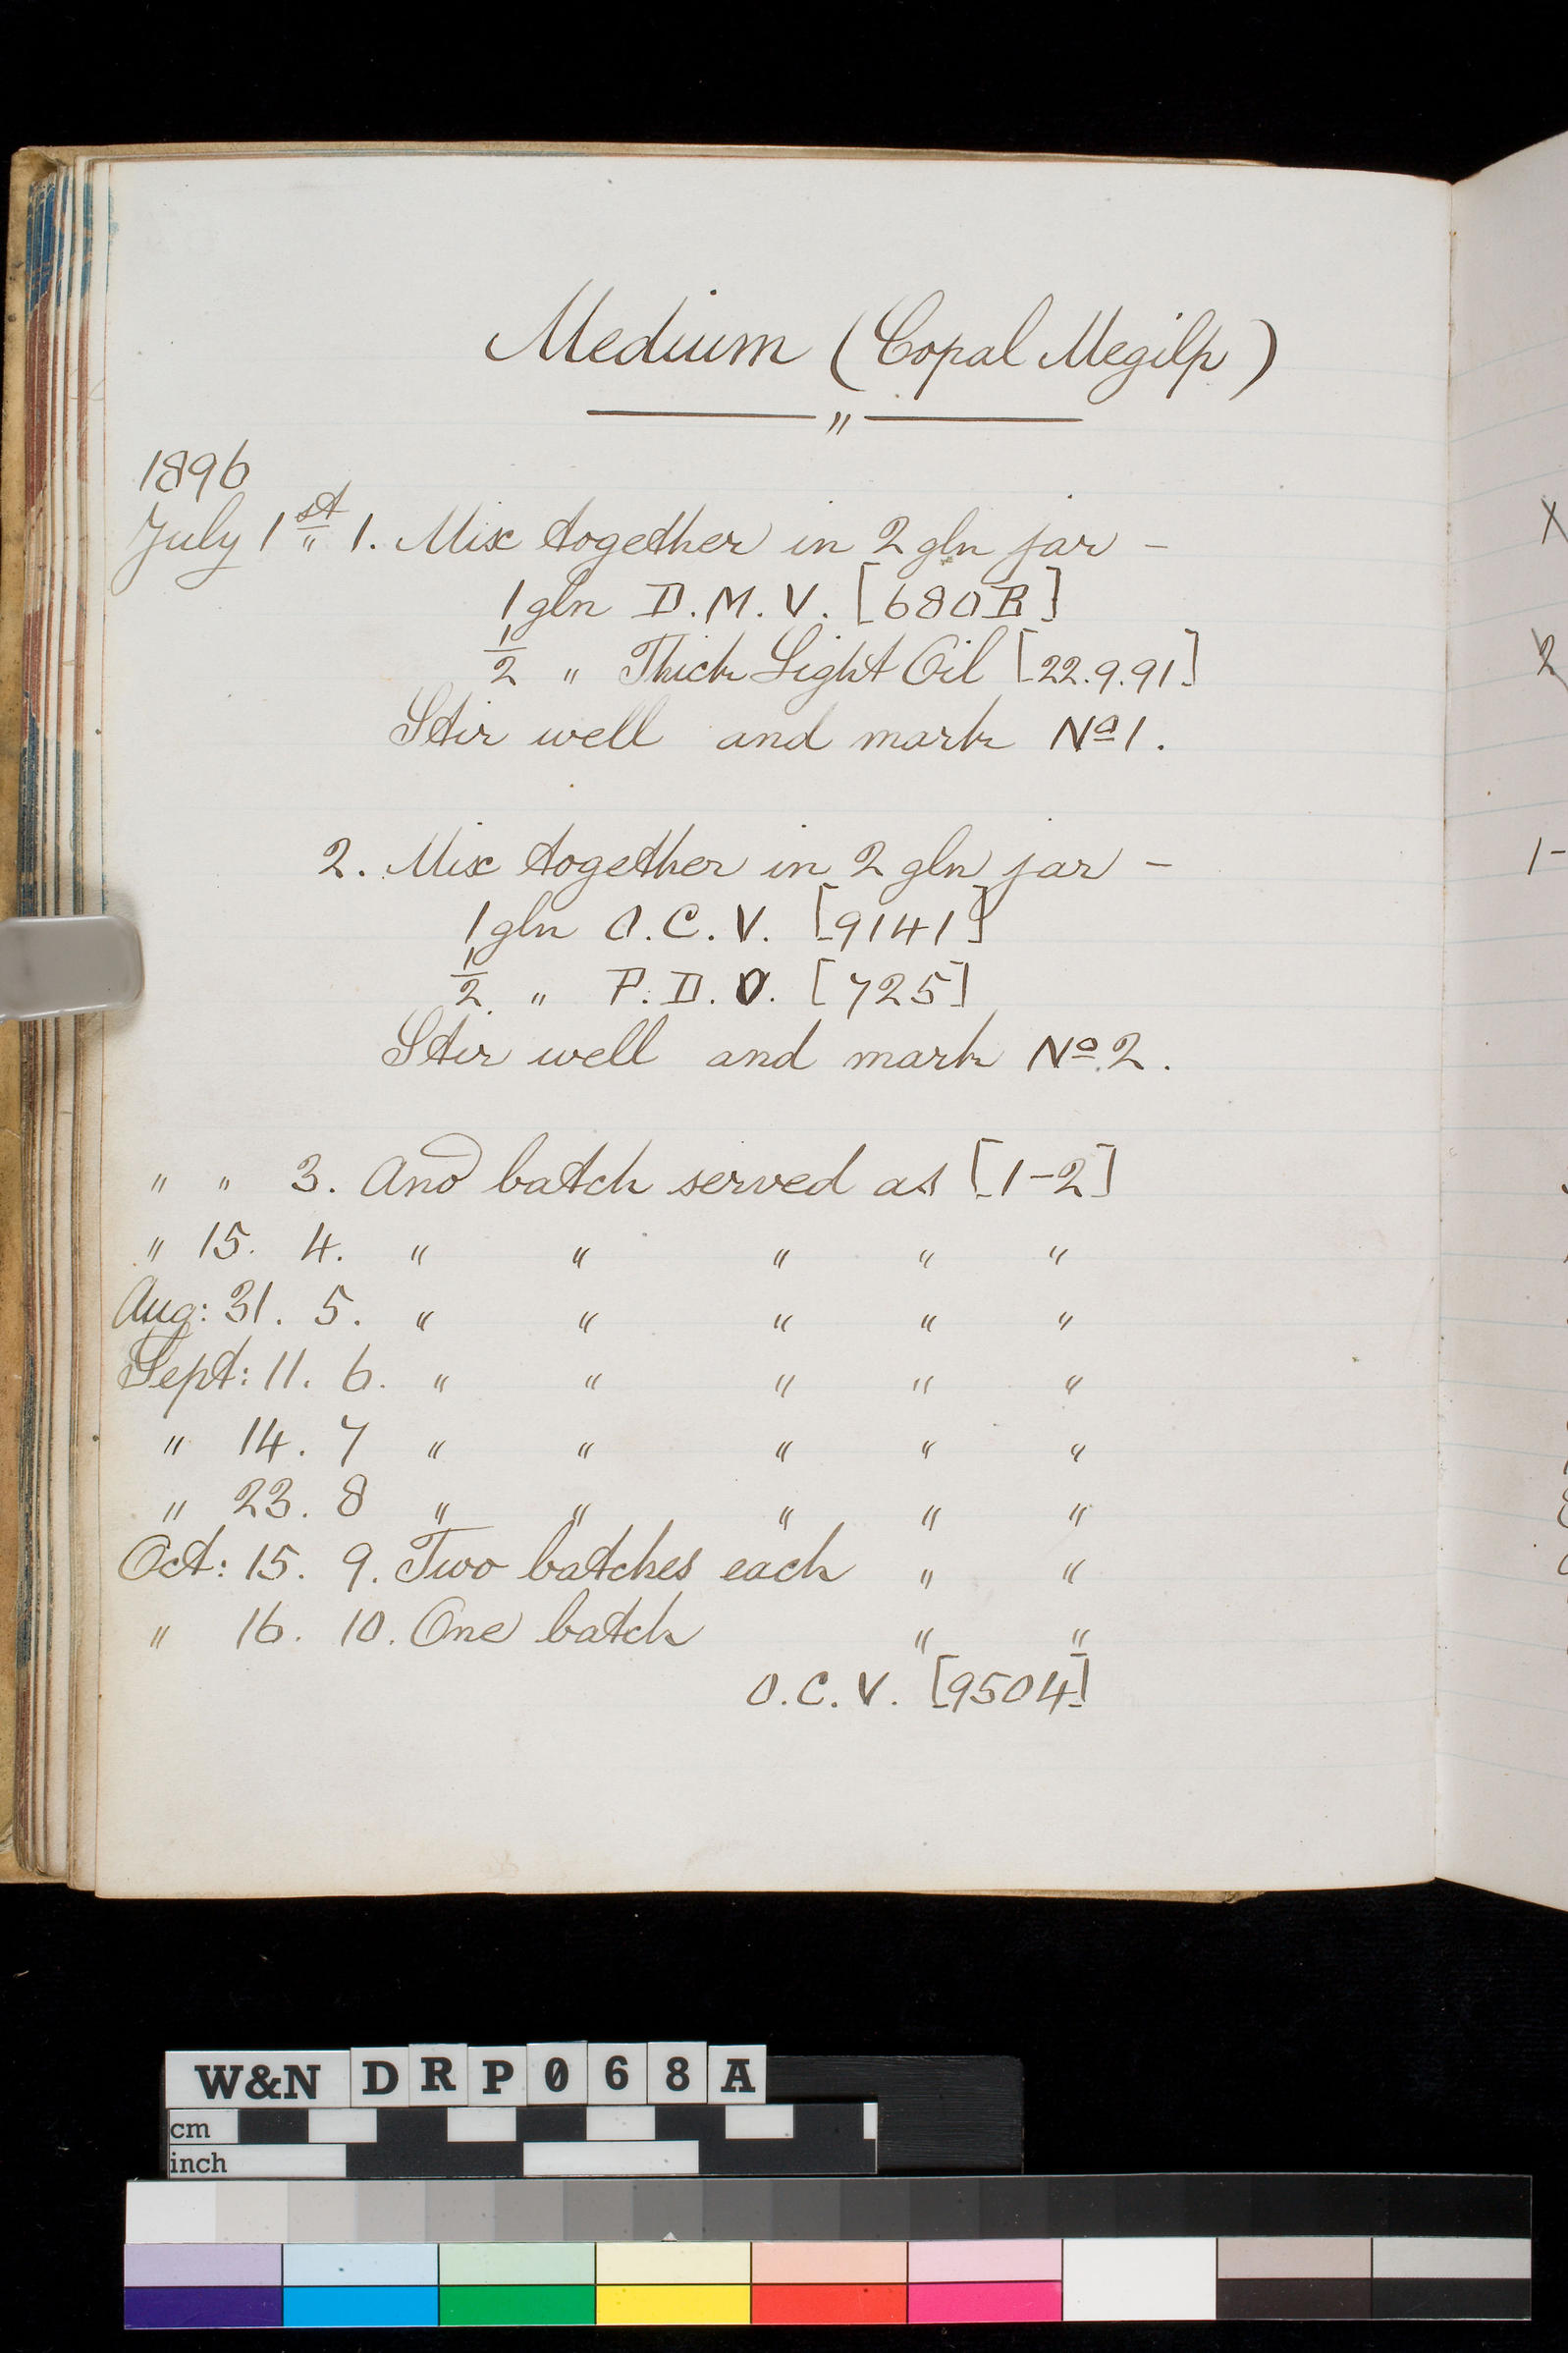 Medium (Copal Megilp)
"
1896
July 1st " 1. Mix together in 2 gln jar –
1 gln D.M.V. [680B]
1/2 " Thick Light Oil [22.9.91]
Stir well and mark No 1.
2. Mix together in 2 gln jar –
1 gln O.C.V. [9141]
1/2 " P.D.O. [725]
Stir well and mark No 2.
" " 3. Ano batch served as [1-2]
" 15. 4. " " " " "
Aug: 31. 5. " " " " "
Sept: 11. 6. " " " " "
" 14. 7 " " " " "
" 23. 8 " " " " "
Oct: 15. 9. Two batches each " "
" 16. 10. One batch " "
O.C.V. [9504]
X
2
1-
W&N DRP068A
cm
inch